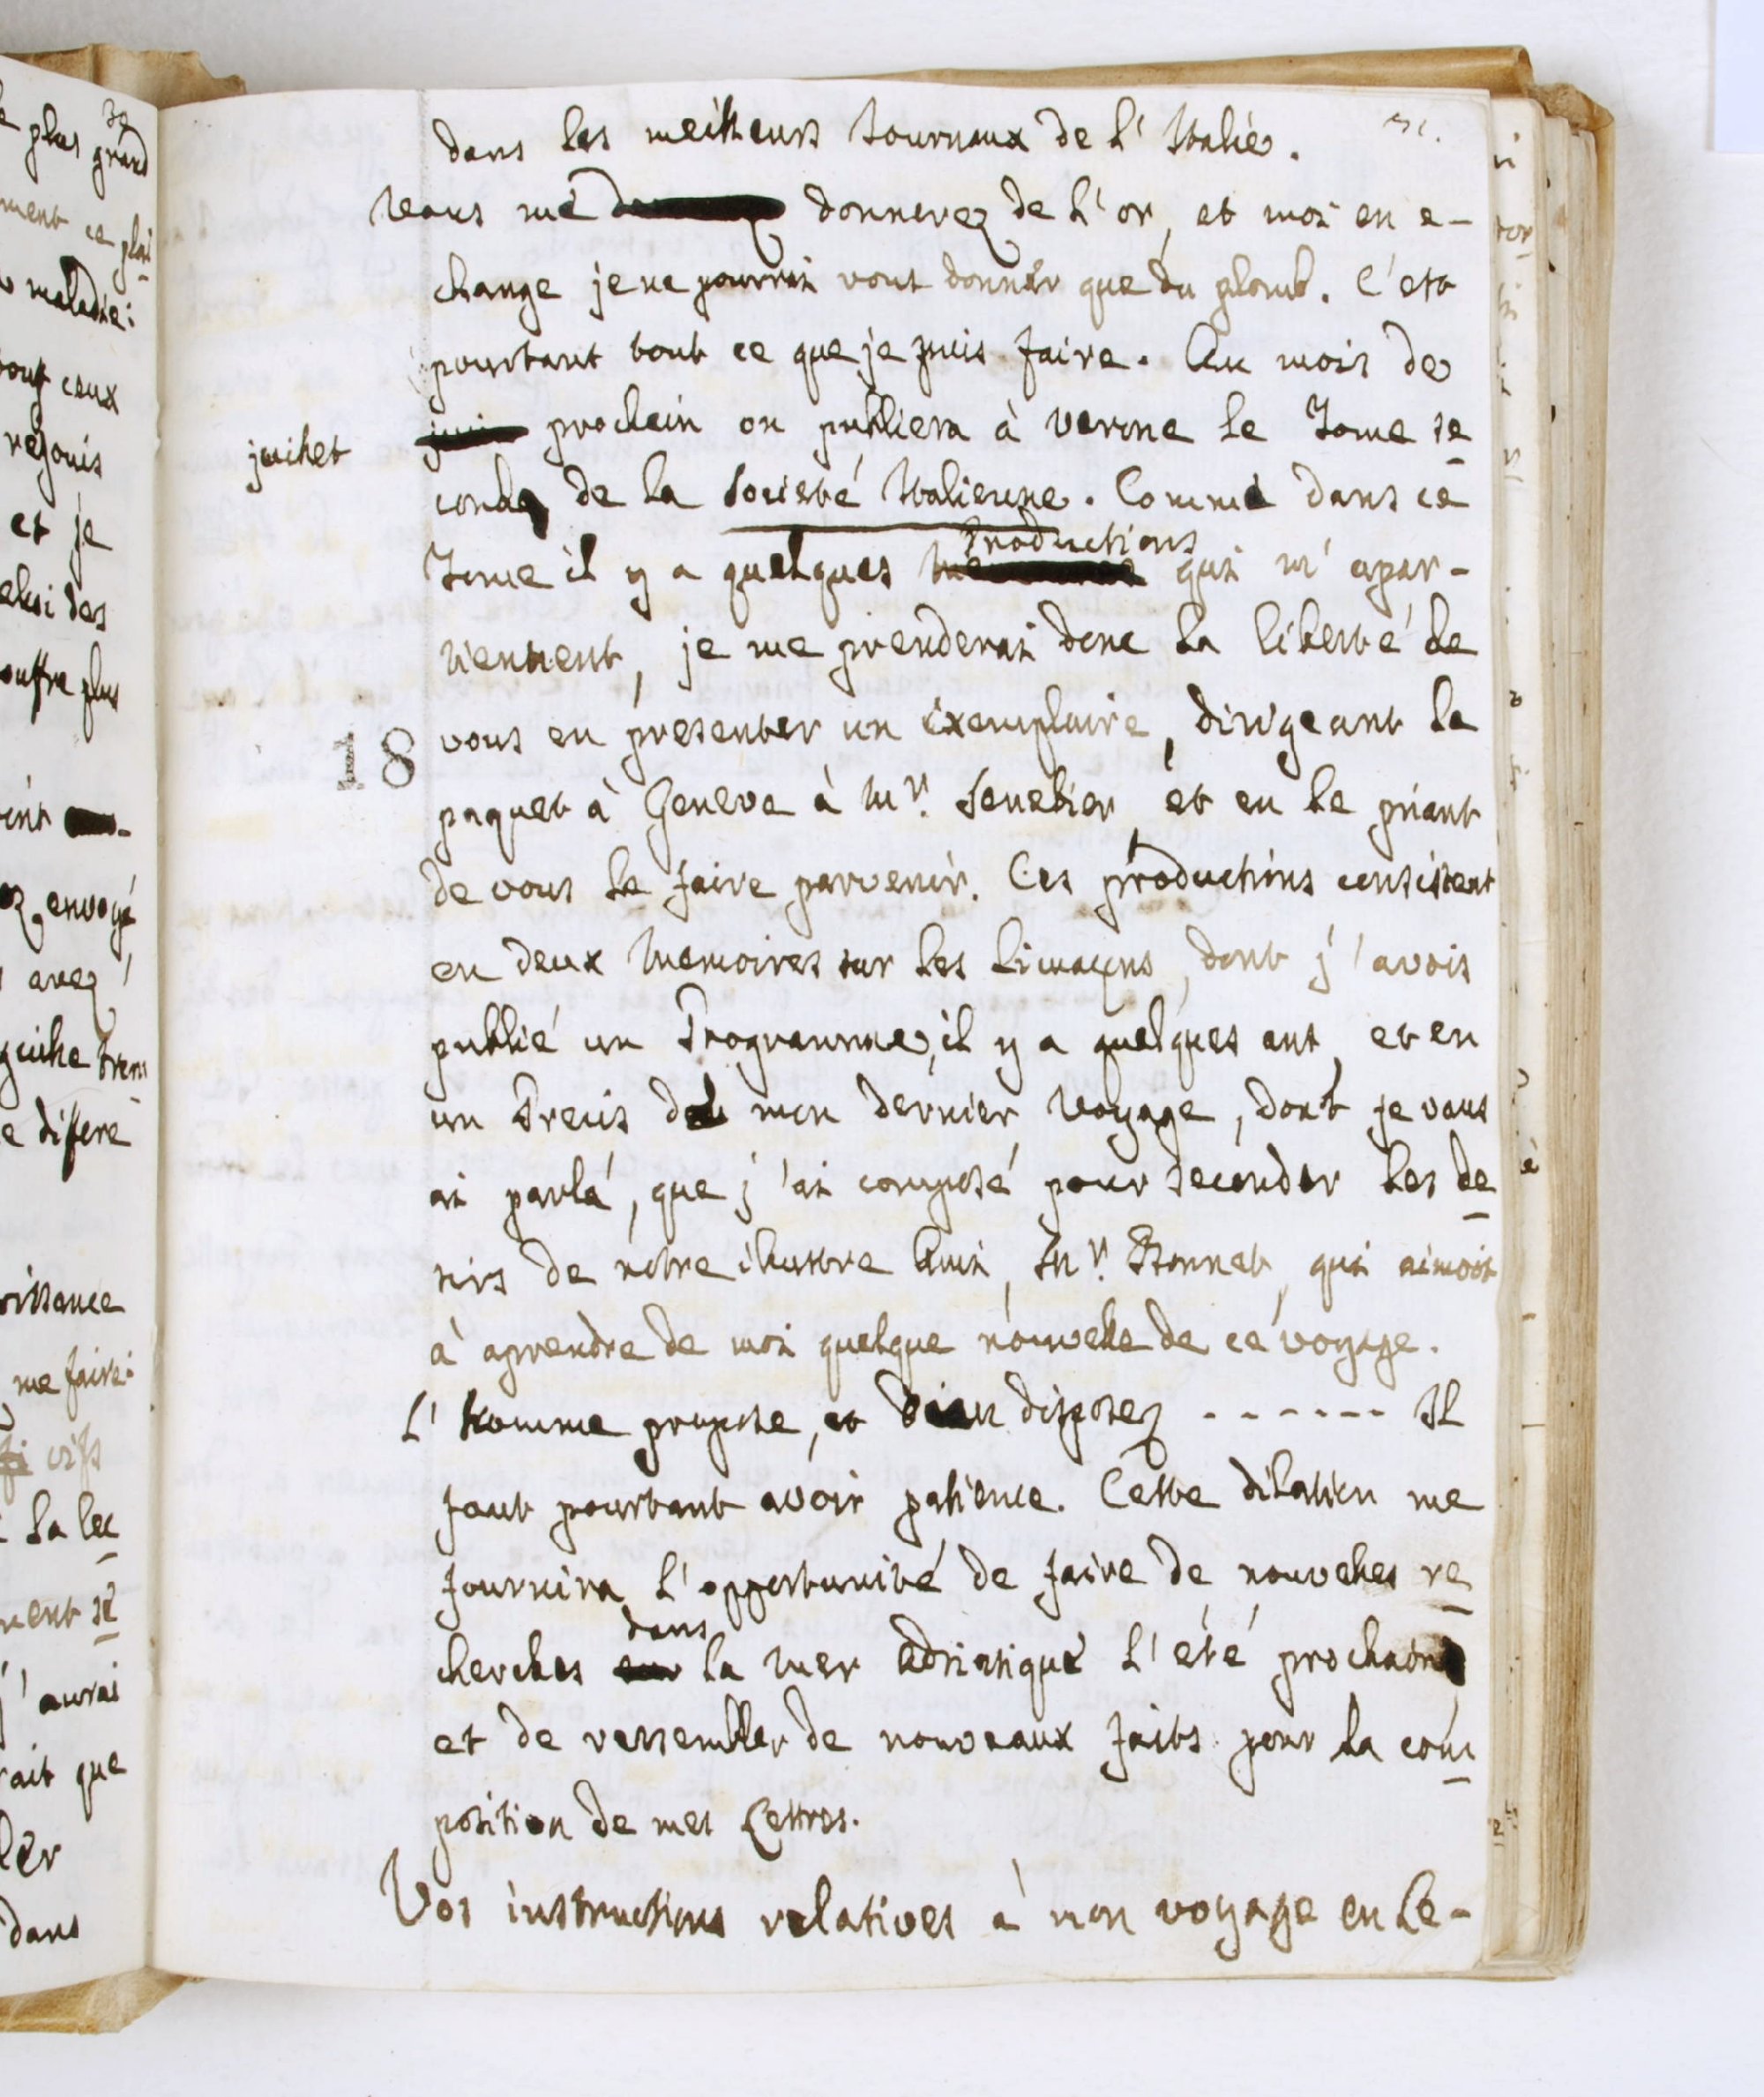 dans les meilleurs Journaux de l' Italie.
Vous me donnerez de l'or, et moi en e-
change je ne pourrai vous donner que du plomb. C'est
pourtant tout ce que je puis faire. Au mois de
juillet juin prochein on publiera à Verone le Tome se
conde de la Societé Italienne. Comme dans ce
Productions
Tome il y a quelques qui m' apar-
tiennent, je me prenderai donc la liberté de
18 vous en presenter un exemplaire, dirigeant le
paquet à Geneve à Mr. Senebier, et en le priant
de vous le faire parvenir. Ces productions consistent
en deux Memoires sur les Limaçons, dont j'avois
publié un Programme, il y a quelques ans, et en
un Precis de mon dernier Voyage, dont je vous
ai parlé, que j'ai composé pour seconder les de
sirs de nôtre illustre Ami, Mr. Bonnet, qui aimoit
à aprendre de moi quelque nouvelle de ce voyage.
L' homme propose, et Dieu disposez ------ Il
faut pourtant avoir patience. Cette dilation me
fournira l'opportunité de faire de nouvelles re
dans
cherches sur la Mer Adriatique l'eté prochain
et de rassembler de nouveaux faits pour la com
position de mes Lettres.
Vos instructions relatives à mon voyage en Le-
de
plus grand
ment ce plai
maladie:
ceux
rejouis
et je
des
plus
envoyé
avez
differe
me faire
vifs
la lec
j'aurai
que
dans